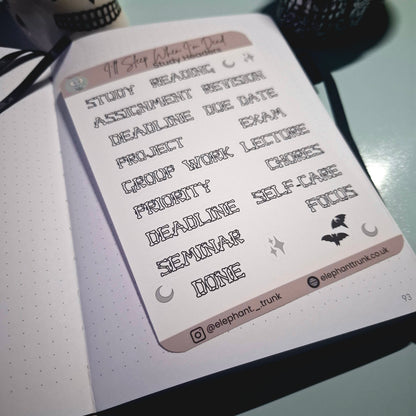 I'll Sleep When I'm Dead
Study Headers
STUDY READING
ASSIGNMENT REVISION
DEADLINE DUE DATE
PROJECT EXAM
GROUP WORK LECTURE
PRIORITY CHORES
DEADLINE SELF-CARE
SEMINAR FOCUS
DONE
@elephant_trunk elephanttrunk.co.uk
93